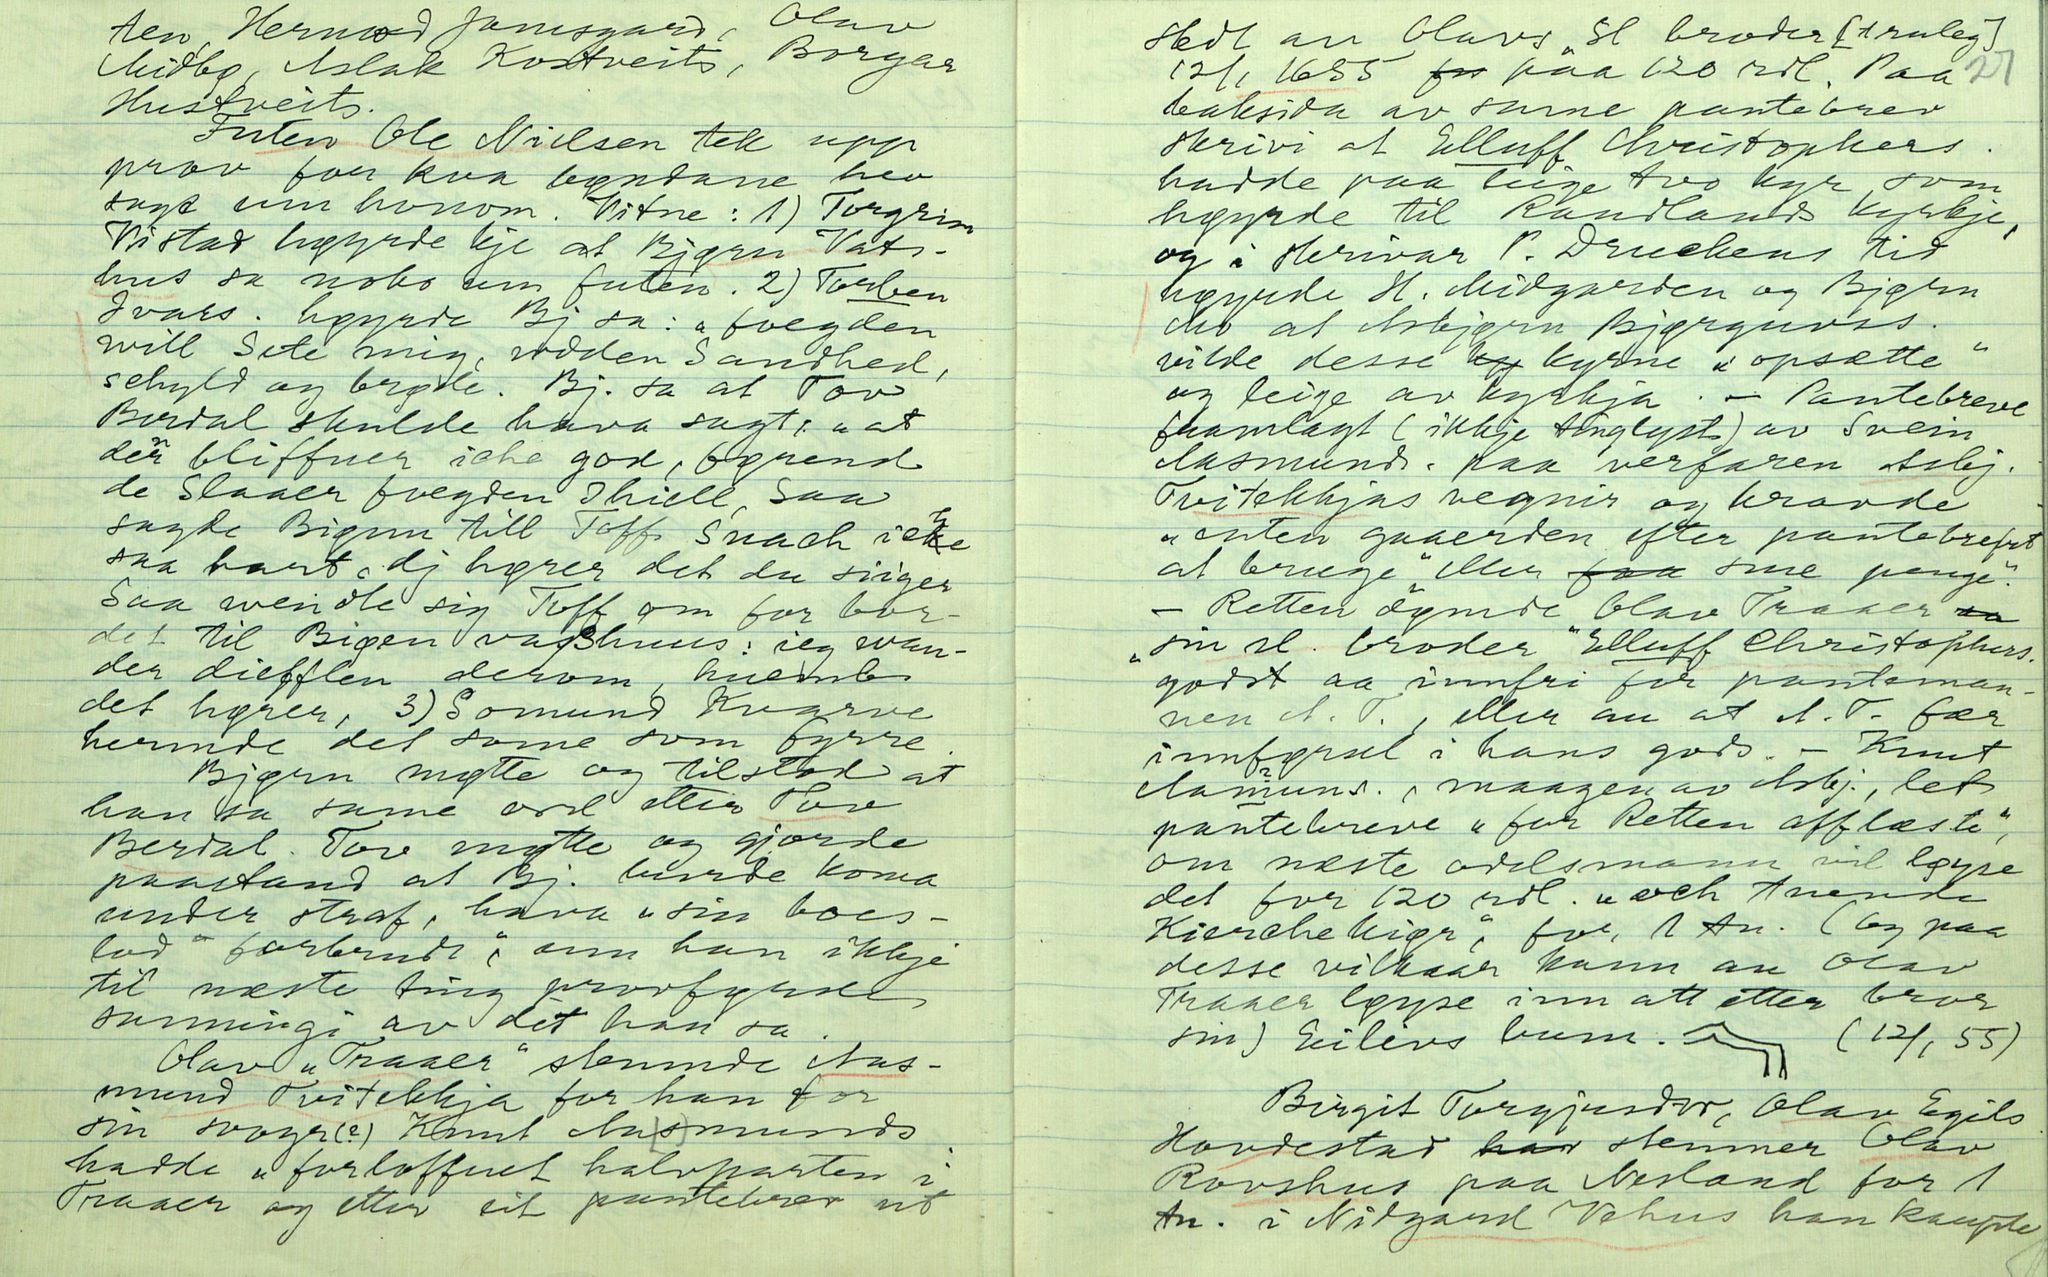 ten, Hermod Jamsgard, Olav
Midbø, Aslak Kostveit, Borgar
Hustveit.
Futen Ole Nielsen tek upp
prov for kva bøndane hev
sagt um honom. Vitne: 1) Torgrim
Vistad høyrde kje at Bjørn Vats-
hus sa noko um futen. 2) Torben
Ivars. høyrde Bj sa: „foegden
will Sete mig, vdden Sandhed,
schyld og brøde. Bj. sa at Tov
Berdal skulde hava sagt: „at
der bliffuer iche god, førend
de Slaaer foegden Ihiell, Saa
sagde Bigrnn till Toff Snach icke
saa hart, dj hører det du siiger
Saa wendte sig Toff om for bor-
det til Bigen vasshuus: ieg wan-
der dieffler derom, huemb
det hører, 3) Somund Kvarve
hermde det same som fyrre.
Bjørn møtte og tilstod at
han sa same ord etter Tov
Berdal. Tov møtte og gjorde
paastand at Bj. burde koma
under straf, hava „sin boes-
lod" forbrudt", um han ikkje
til næste ting provfører
sanningi av det han sa.
Olav „Traaer" stemnde Aas-
mund Tvitekkja for han for
sin svogr(?) Knut Aasmunds
hadde „forloffuet halvparten i
Traaer og etter eit pantebrev ut
stedt au Olavs „Sl broder [truleg]
12/1 1655 paa 120 rdl. Paa 27
baksida av same pantebrev
skrivi at Elluff Christophers.
hadde paa leige tvo kyr, som
høyrde til Raudlands kyrkje,
og i skrivar P. Druckens tid
høyrde H. Midgarden og Bjørn
Mo at Asbjørn Bjørguvss.
vilde desse kyrne „opsætte"
og leige av kyrkja. – Pantebreve
framlagt (ikkje tinglyst) av Svein
Aasmunds. paa verfaren Asbj.
Tvitekkjas vegnir og kravde
„enten gaaerden efter pantebrefvt
at bruge" eller sine penge".
– Retten dømde Olav Traaer
„sin sl. broder" Elluff Christophers.
godst aa innfri for panteman-
nen A. T., eller au at A. T. fær
innførsel i hans gods. – Knut
Aamuns., maagen av Asbj., let
pantebreve „for Retten afflæste",
om næste odelsmann vil løyse
det for 120 rdl. „och tuende
Kierchekiør", for 1 tn. (og paa
desse vilkaar kann au Olav
Traaer løyse inn att etter bror
sin) Eilivs bum. (12/1 55)
Birgit Torgjusdtr, Olav Egils
Hovdestad stemner Olav
Rovshus paa Nesland for 1
tn. i Nidgard Vehus han kaupte